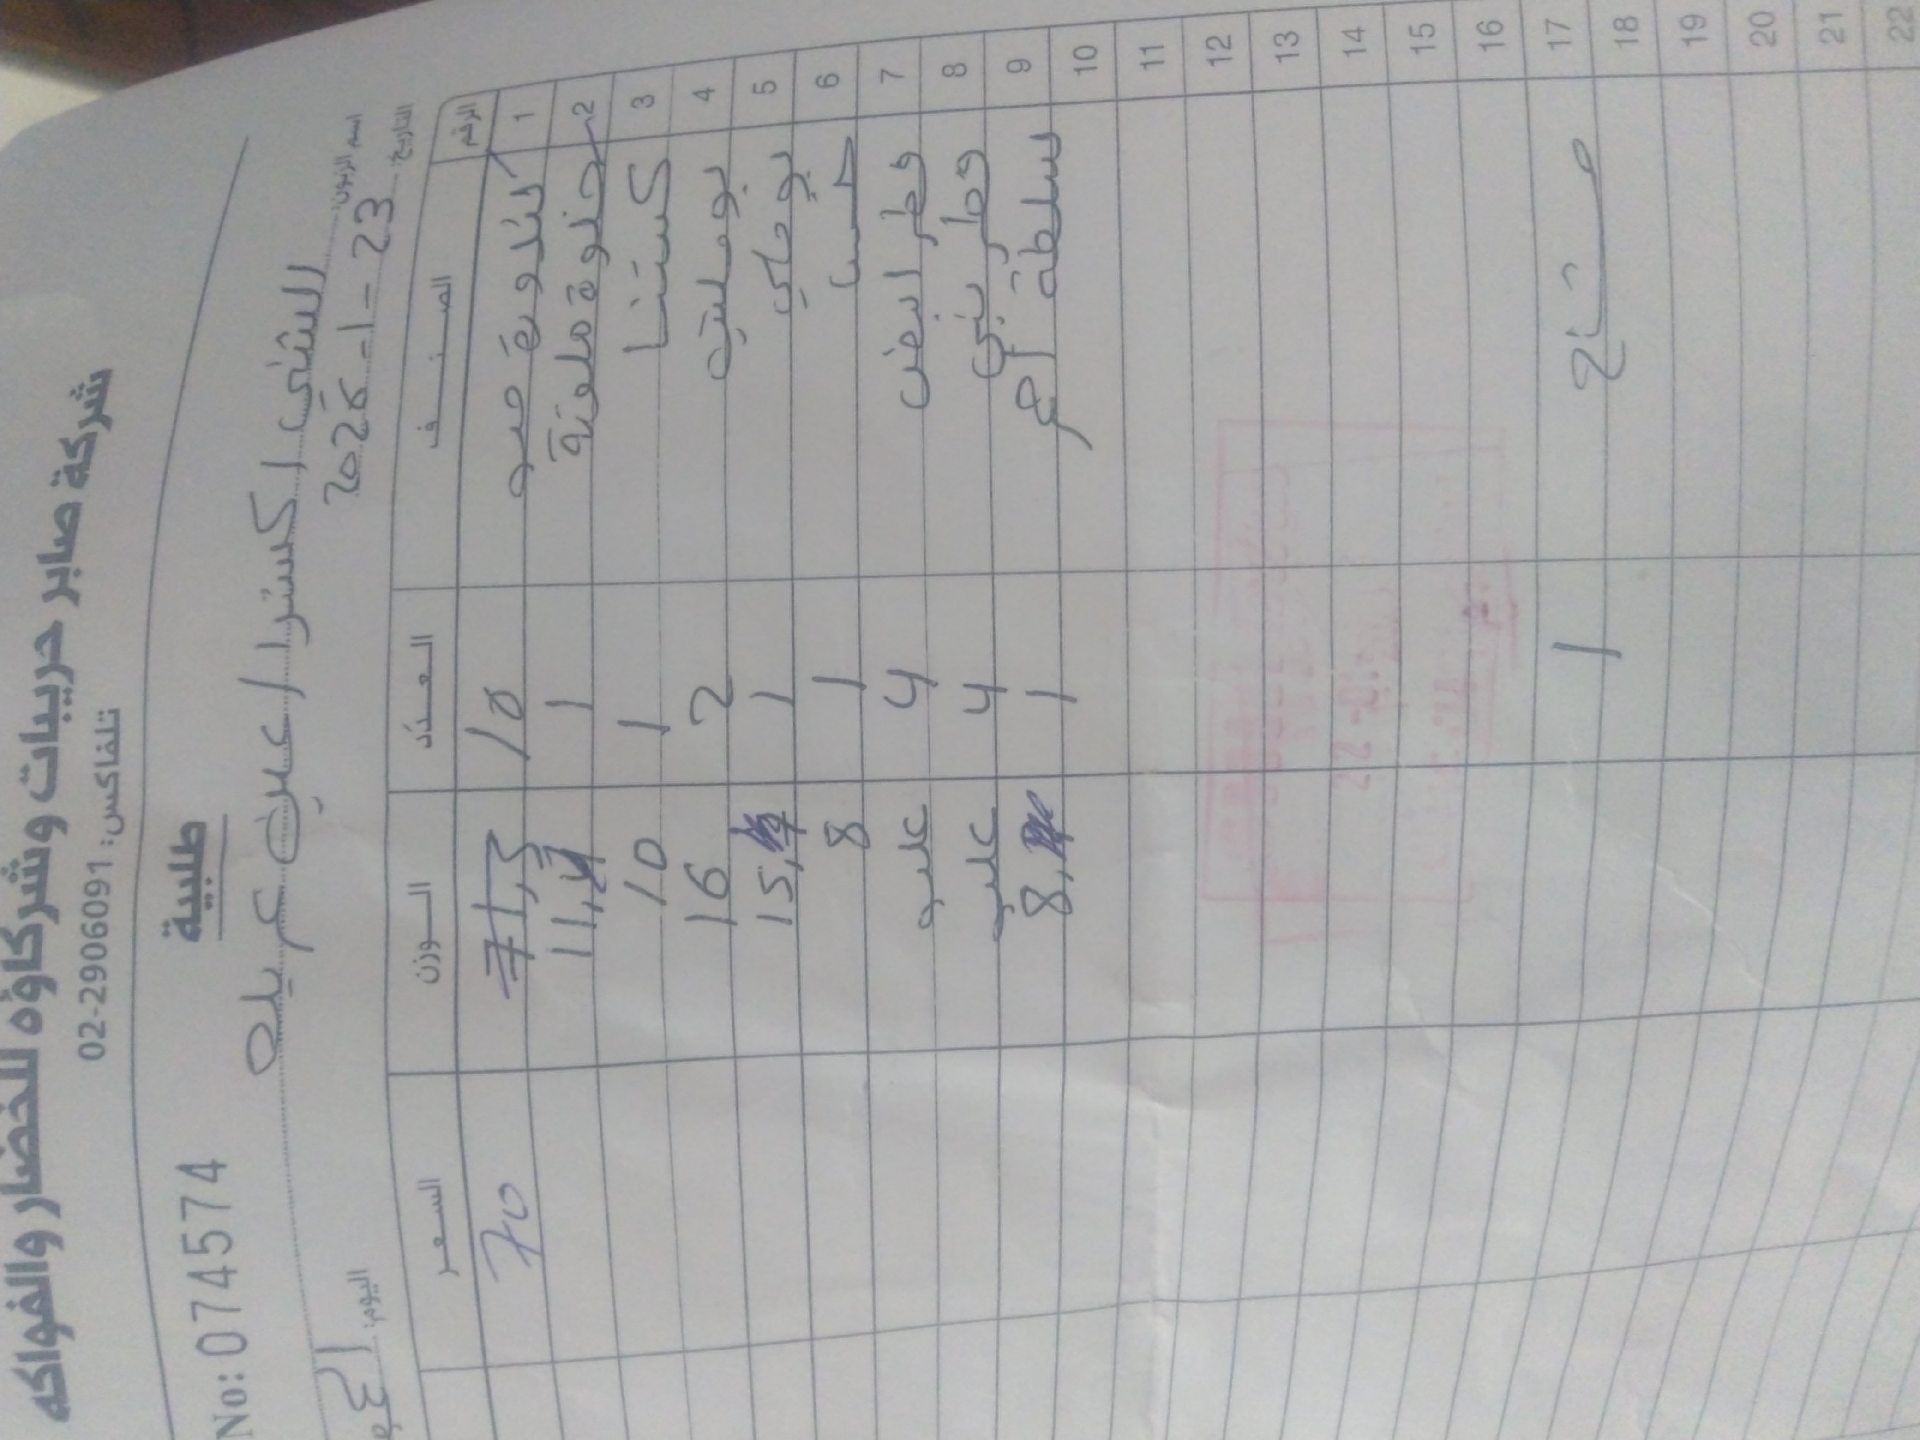 شركة صابر حريبات وشركاؤه للخضار والفواكه
تلفاكس: 02-2906091
طلبية
No: 0774574
اسم الزبون: الشني اكسترا / عين عريك
التاريخ: 23-1-2026 اليوم:
الرقم الصنف العدد الوزن السعر
1 10 71,5 70
2 حلوة ملونة 1 11,
3 كستنا 1 10
4 بوملية 2 16
5 بوملي 1 15,
6 خس 1 8
7 فطر ابيض 4 علبه
8 فطر بني 4 علبه
9 سلطة 1 8,
10
11
12
13
14
15
16
17 1
18
19
20
21
22
22-01-